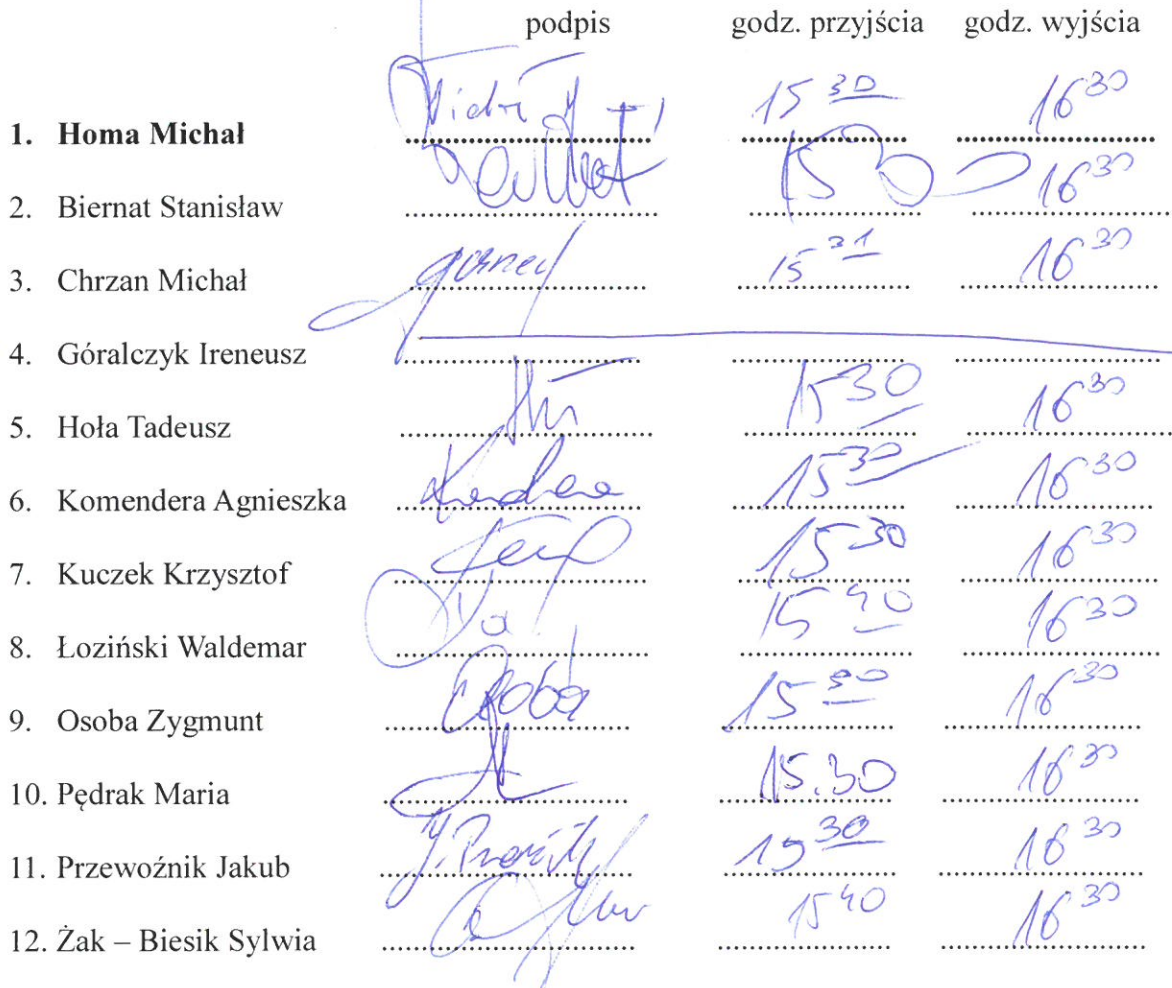 podpis godz. przyjścia godz. wyjścia
1. Homa Michał 15 30 16 30
2. Biernat Stanisław 15 30 16 30
3. Chrzan Michał 15 31 16 30
4. Góralczyk Ireneusz
5. Hoła Tadeusz 15 30 16 30
6. Komendera Agnieszka 15 30 16 30
7. Kuczek Krzysztof 15 30 16 30
8. Łoziński Waldemar 15 40 16 30
9. Osoba Zygmunt Osoba 15 30 16 30
10. Pędrak Maria 15.30 16 30
11. Przewoźnik Jakub 15 30 16 30
12. Żak – Biesik Sylwia 15 40 16 30